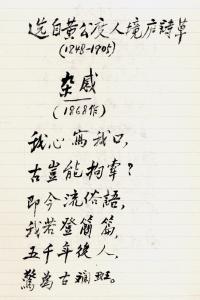 选自黄公度人境庐詩草
(1848-1905)
杂感
(1868作)
我心寫我口，
古豈能拘牽？
即今流俗語，
我若登簡篇，
五千年後人，
驚為古斓斑。